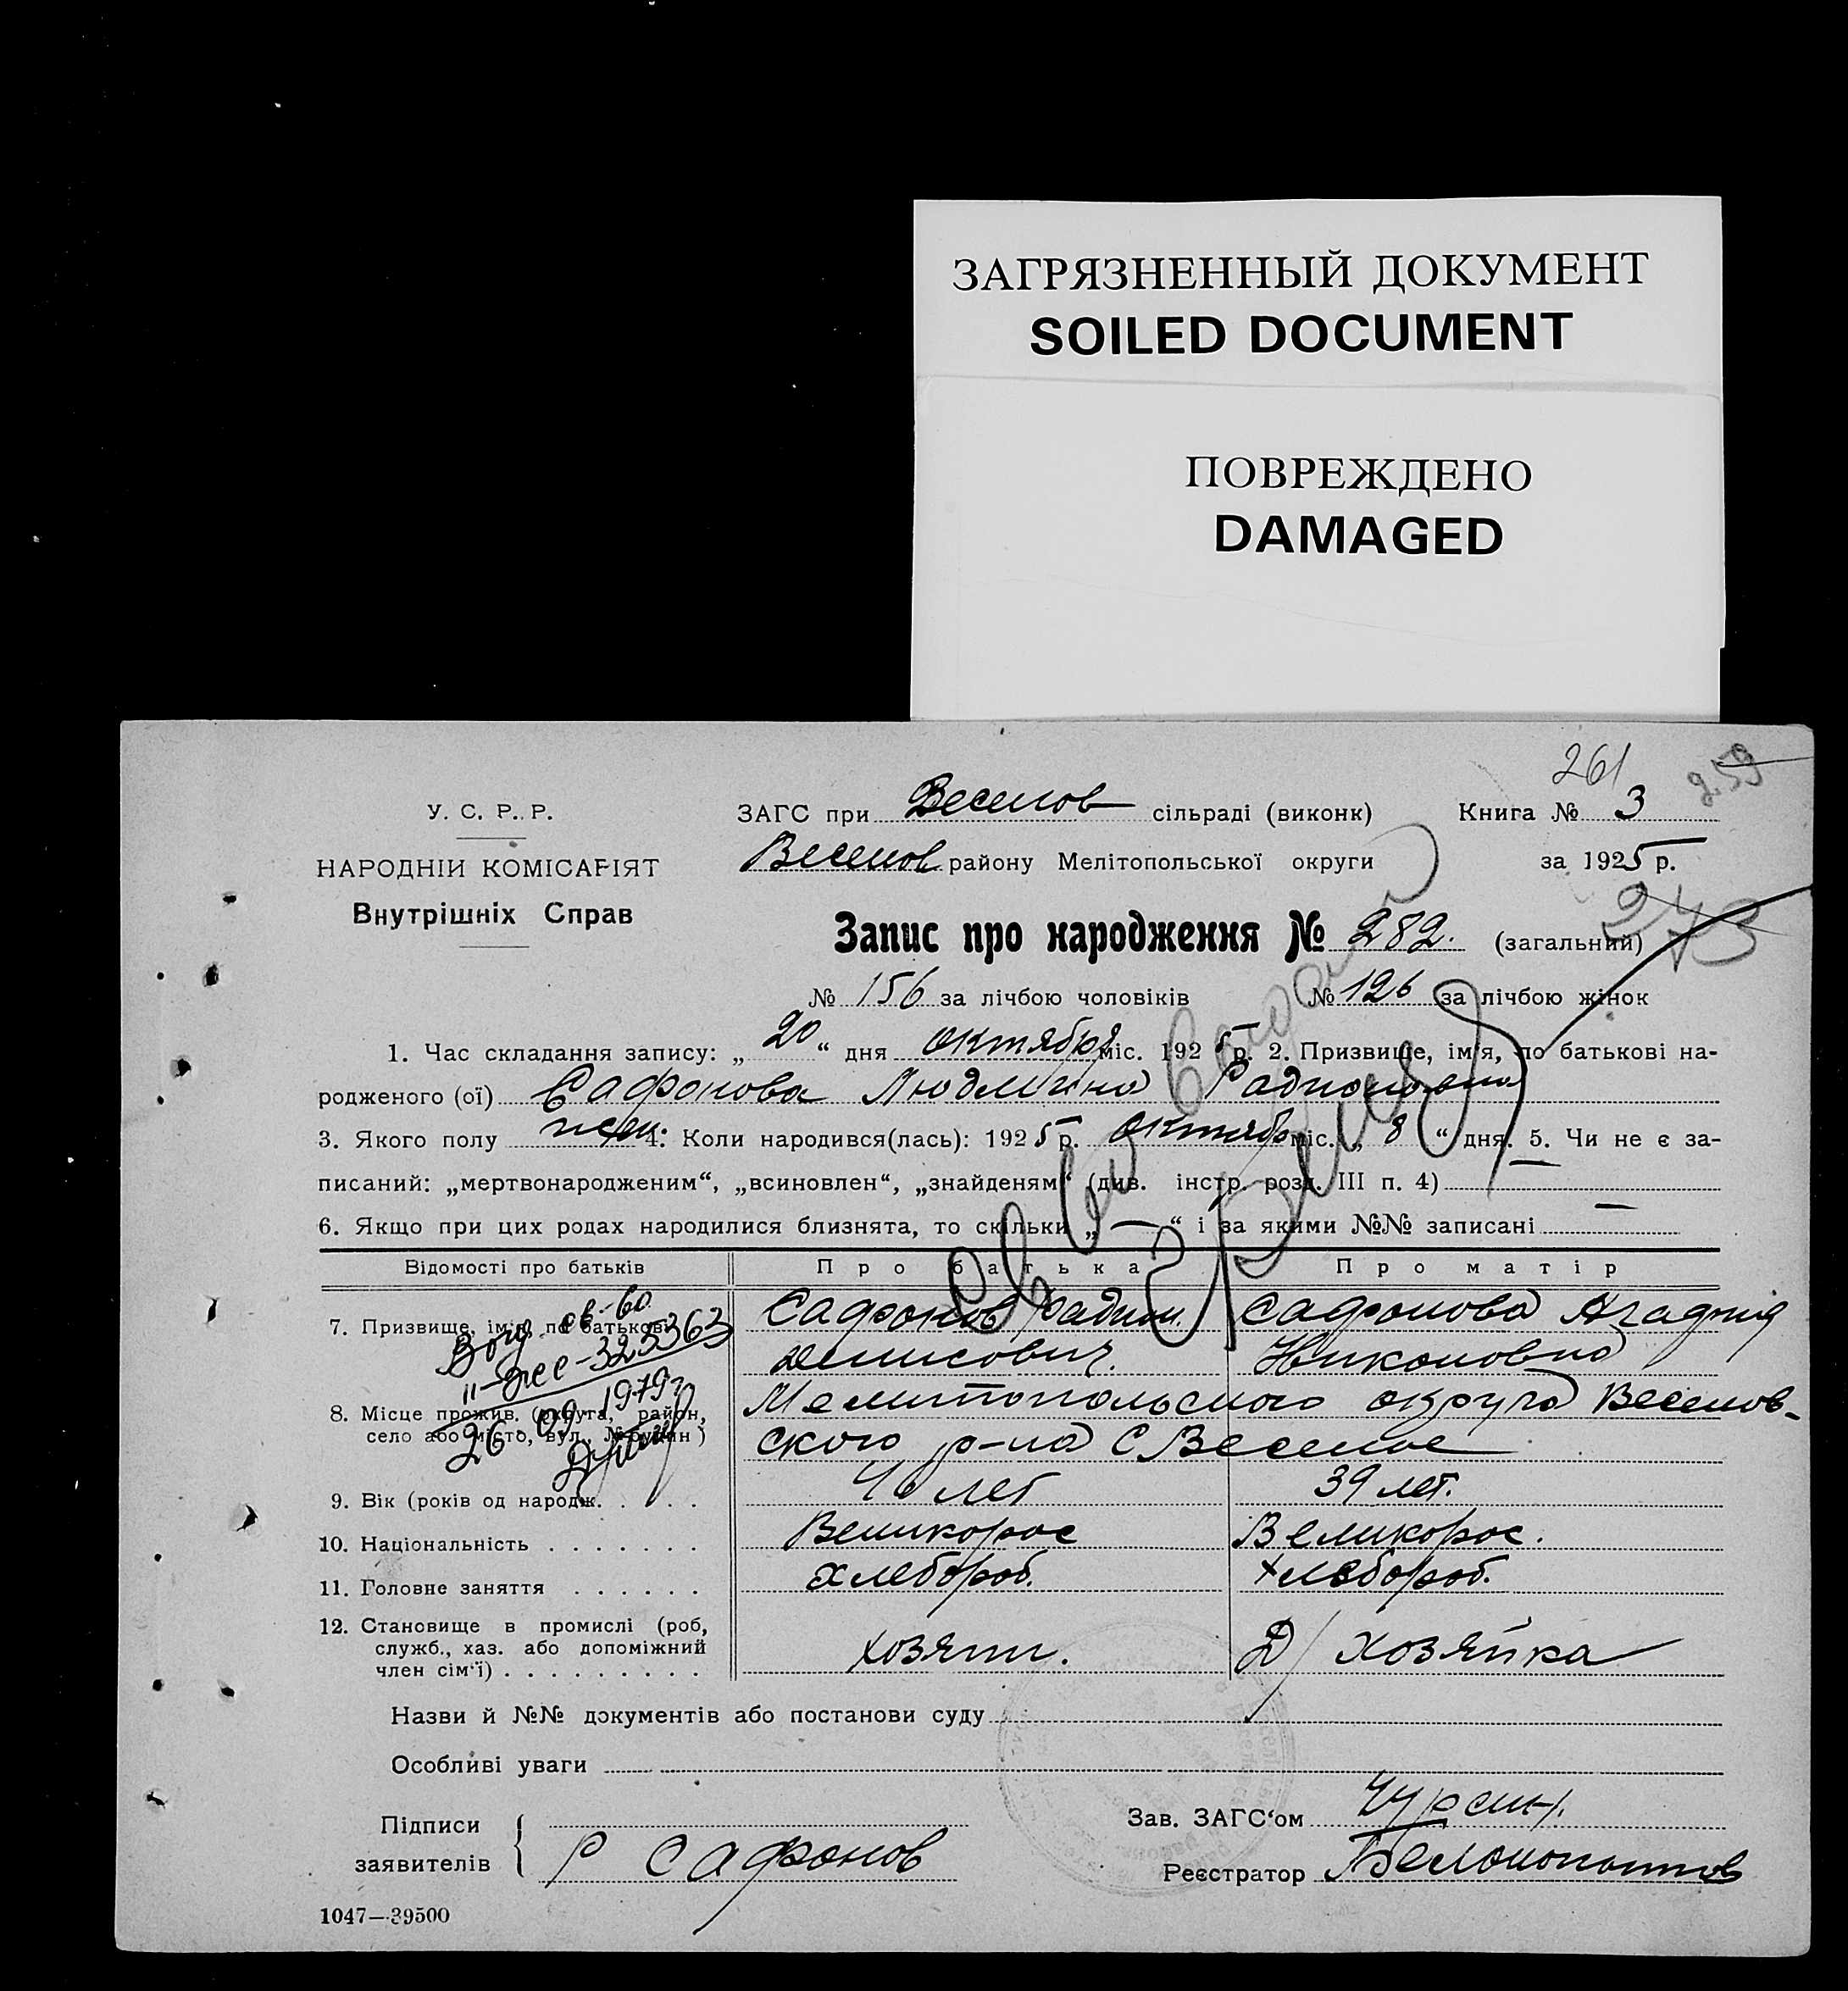 ЗАГРЯЗНЕННЫЙ ДОКУМЕНТ
SOILED DOCUMENT
ПОВРЕЖДЕНО
DAMAGED
261 259
У. С. Р. Р. ЗАГС при Веселов сільраді (виконк) Книга № 3
НАРОДНІЙ КОМІСАРІЯТ Веселов району Мелітопольської округи за 1925 р.
Внутрішніх Справ
273
Запис про народження № 282. (загальний)
№ 156 за лічбою чоловіків № 126 за лічбою жінок
1. Час складання запису: „ 20 “ дня октября міс. 1925 р. 2. Призвище, ім'я, по батькові на-
родженого (ої) Сафонова Людмина Радионовна
3. Якого полу жен. 4. Коли народився(лась): 1925 р. октябр міс. „ 8 “ дня. 5. Чи не є за-
писаний: „мертвонародженим“, „всиновлен“, „знайденям“ (див. інстр. розд. III п. 4) —
6. Якщо при цих родах народилися близнята, то скільки „ — “ і за якими №№ записані —
Відомості про батьків Про батька Про матір
7. Призвище, ім'я, по батькові Сафонов Радион. Сафонова Агафия
Денисович. Никоновна
св-во
II-ЖС-325363
26.09.1979г
8. Місце прожив. (округа, район, Мелитопольского округа Веселов-
село або місто, вул., № будин) ского р-на с Веселое
9. Вік (років од народж. . . . . 40 лет 39 лет.
10. Національність . . . . . . . Великорос Великорос.
11. Головне заняття . . . . . . хлебороб. хлебороб.
12. Становище в промислі (роб,
служб., хаз. або допоміжний
член сім'ї) . . . . . . . . . хозяин. Д/ хозяйка
Назви й №№ документів або постанови суду
Особливі уваги
Підписи Зав. ЗАГС'ом Чурсин.
заявителів Р Сафонов Реєстратор
1047—39500